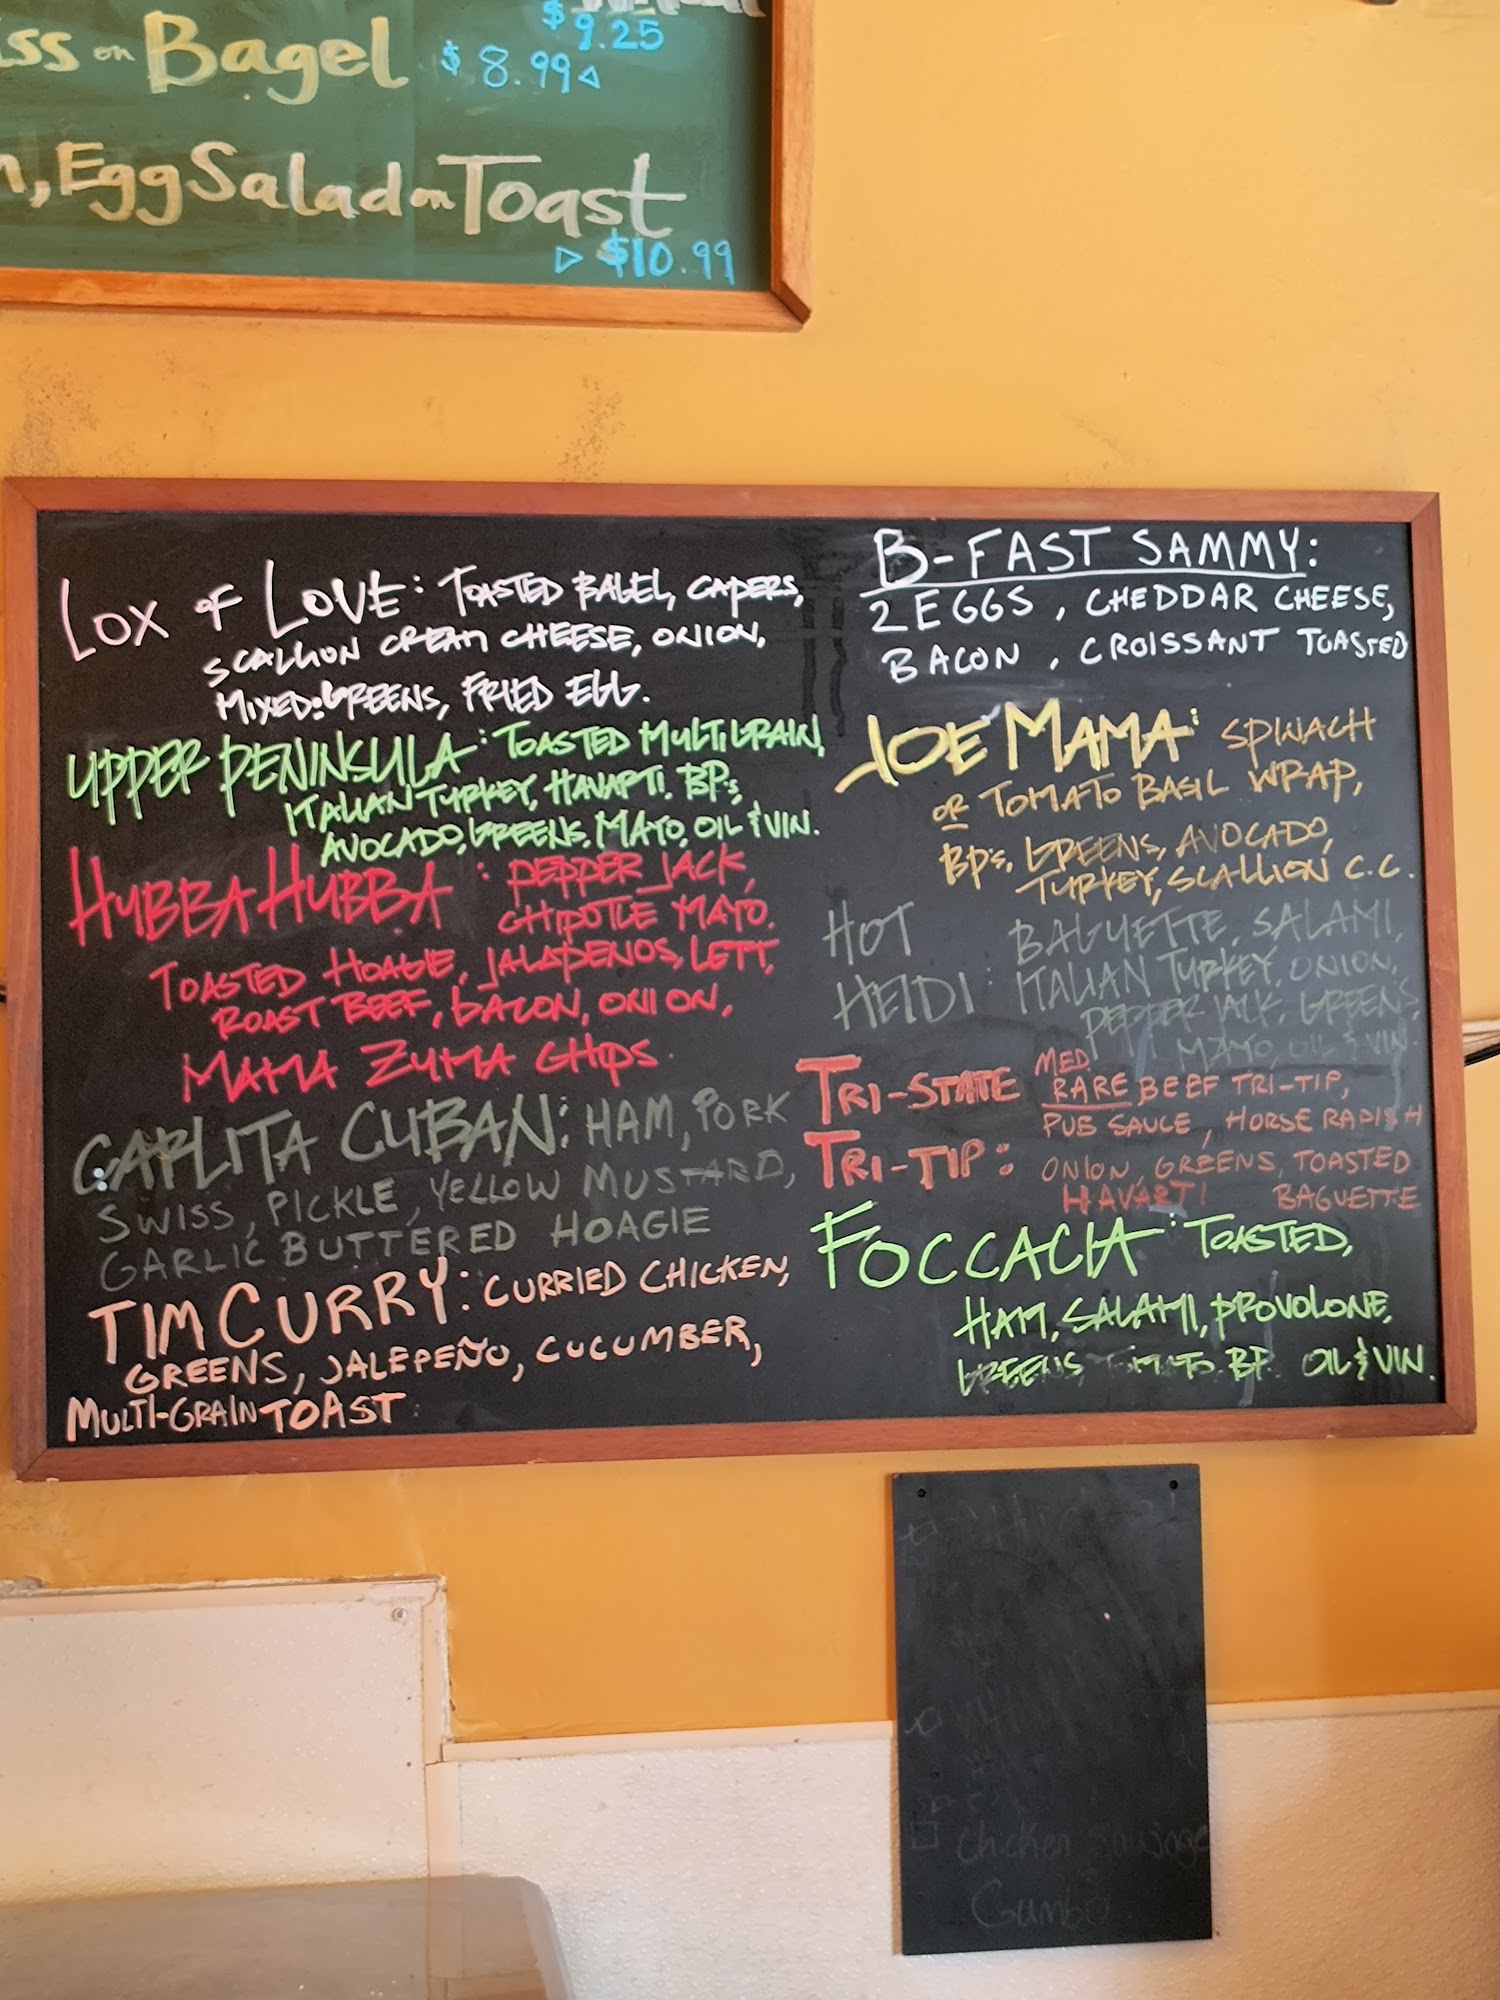 $9.25
ss on Bagel $8.99
, Egg Salad on Toast
$10.99
LOX OF LOVE: TOASTED BAGEL, CAPERS,
SCALLION CREAM CHEESE, ONION,
MIXED GREENS, FRIED EGG.
UPPER PENINSULA: TOASTED MULTIGRAIN,
ITALIAN TURKEY, HAVARTI. BP's,
AVOCADO, GREENS, MAYO, OIL & VIN.
HUBBA HUBBA: PEPPER JACK,
CHIPOTLE MAYO.
TOASTED HOAGIE, JALAPENOS, LETT,
ROAST BEEF, BACON, ONION,
MAMA ZUMA CHIPS.
CARLITA CUBAN: HAM, PORK
SWISS, PICKLE, YELLOW MUSTARD,
GARLIC BUTTERED HOAGIE
TIM CURRY: CURRIED CHICKEN,
GREENS, JALEPEÑO, CUCUMBER,
MULTI-GRAIN TOAST
B-FAST SAMMY:
2 EGGS, CHEDDAR CHEESE,
BACON, CROISSANT TOASTED
JOE MAMA: SPINACH
OR TOMATO BASIL WRAP,
BP's, GREENS, AVOCADO,
TURKEY, SCALLION C.C.
HOT BAGUETTE, SALAMI,
HEIDI: ITALIAN TURKEY, ONION,
PEPPER JACK, GREENS,
MAYO, OIL & VIN.
TRI-STATE MED. RARE BEEF TRI-TIP,
PUB SAUCE, HORSE RADISH
TRI-TIP: ONION, GREENS, TOASTED
HAVARTI BAGUETTE
FOCCACIA: TOASTED,
HAM, SALAMI, PROVOLONE,
GREENS, TOMATO, BP. OIL & VIN.
Chicken Sausage
Gumbo